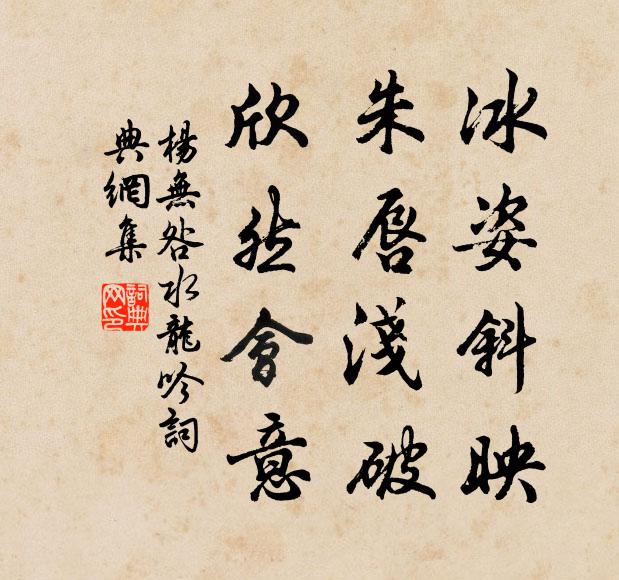 冰姿斜映
朱唇淺破
欣然會意
楊無咎水龍吟詞
典網集
詞典网印